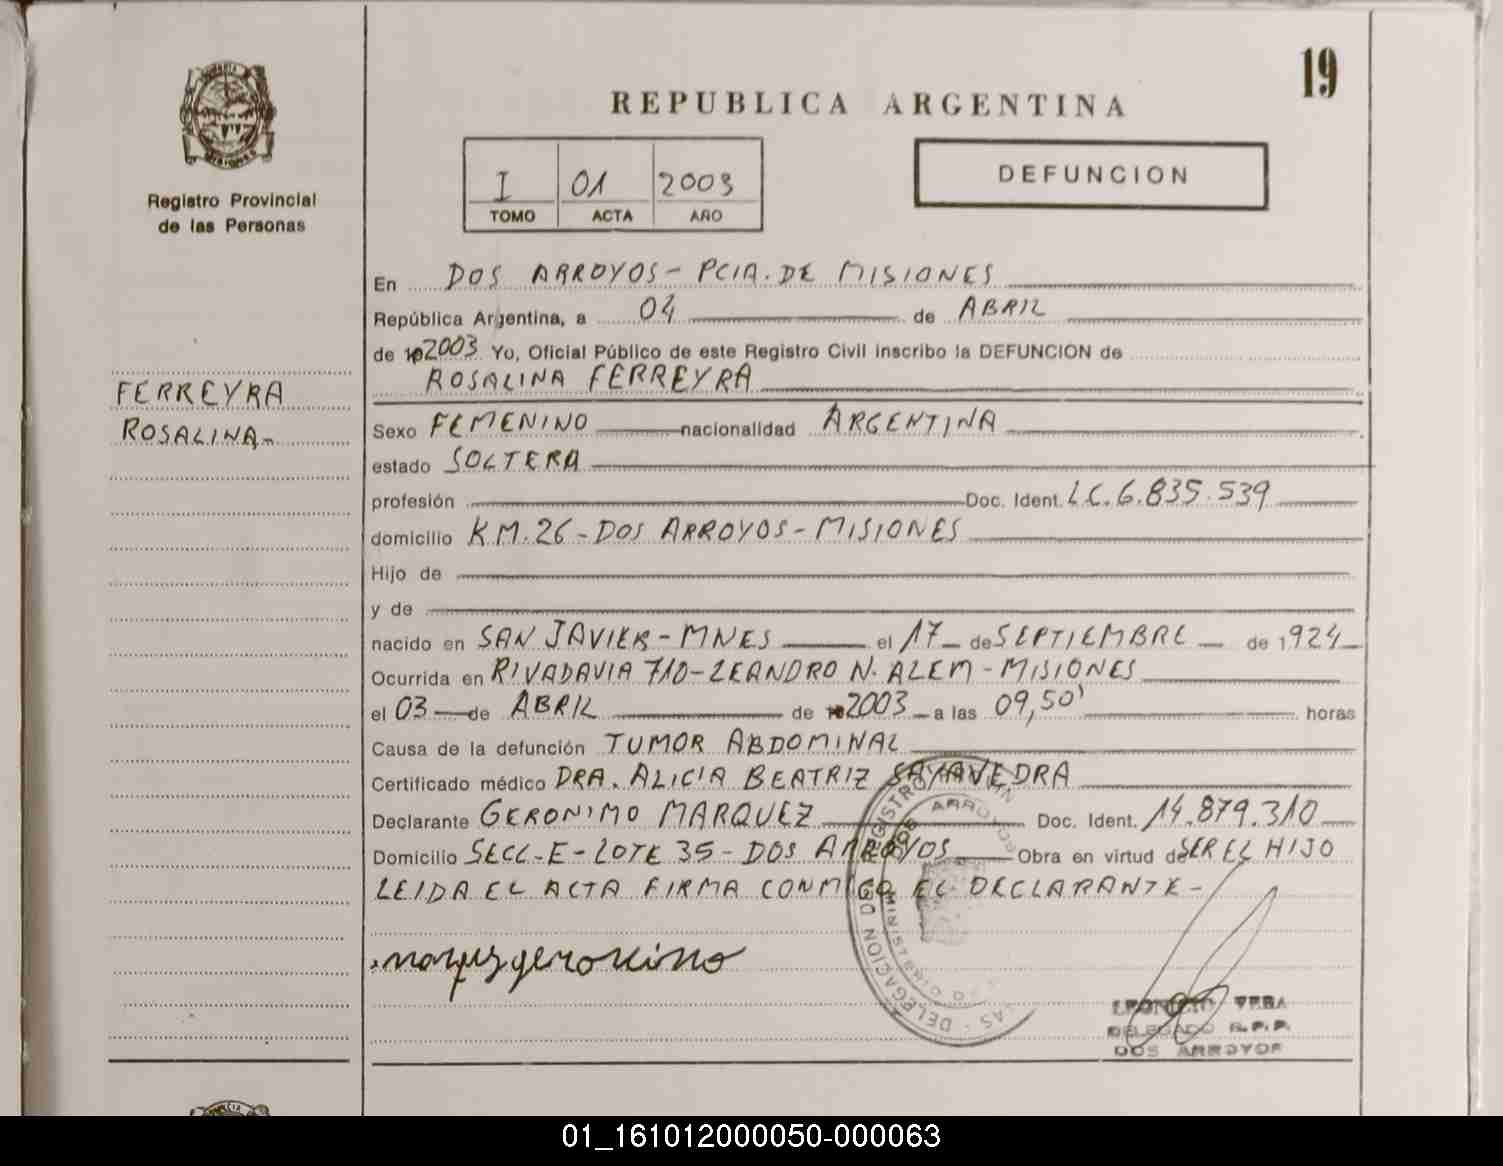 19
REPUBLICA ARGENTINA
Registro Provincial
de las Personas
I 01 2003
TOMO ACTA AÑO
DEFUNCION
FERREYRA
ROSALINA.-
En DOS ARROYOS - PCIA. DE MISIONES
República Argentina, a 04 de ABRIL
de 2003 Yo, Oficial Público de este Registro Civil inscribo la DEFUNCION de
ROSALINA FERREYRA
Sexo FEMENINO nacionalidad ARGENTINA
estado SOLTERA
profesión Doc. Ident. L.C. 6.835.539
domicilio K.M. 26 - DOS ARROYOS - MISIONES
Hijo de
y de
nacido en SAN JAVIER - MNES el 17 de SEPTIEMBRE de 1924
Ocurrida en RIVADAVIA 710 - LEANDRO N. ALEM - MISIONES
el 03 de ABRIL de 2003 a las 09,50' horas
Causa de la defunción TUMOR ABDOMINAL
Certificado médico DRA. ALICIA BEATRIZ SAYAVEDRA
Declarante GERONIMO MARQUEZ Doc. Ident. 14.879.310
Domicilio SECC-E-LOTE 35 - DOS ARROYOS Obra en virtud de SER EL HIJO
LEIDA EL ACTA FIRMA CONMIGO EL DECLARANTE -
DELEGACION DEL REGISTRO
DOS ARROYOS
VERA
DELEGADO R.P.P.
DOS ARROYOS
01_161012000050-000063